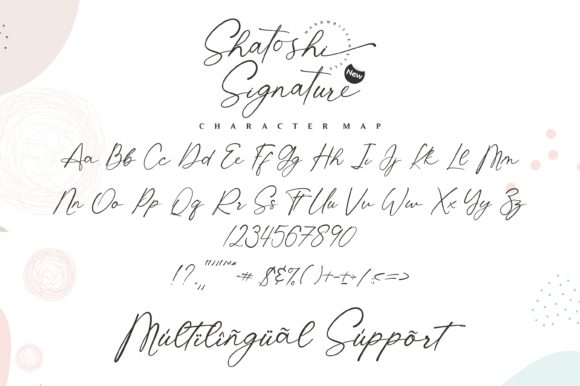 Shatoshi
Signature
New
CHARACTER MAP
Aa Bb Cc Dd Ee Ff Gg Hh Ii Jj Kk Ll Mm
Nn Oo Pp Qq Rr Ss Tt Uu Vv Ww Xx Yy Zz
1234567890
!?.,, # $&%()+-± /:<=>
Múltïlîñgüãl Súppõrt